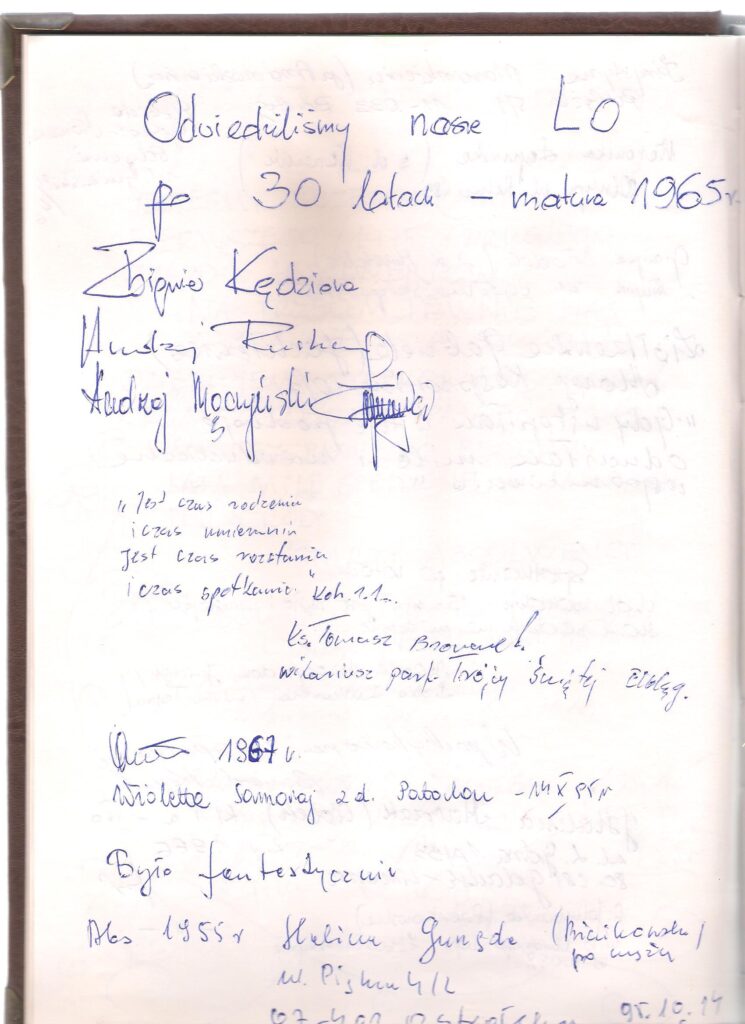 Odwiedziliśmy nasze LO
po 30 latach – matura 1965r.
Zbigniew Kędziora
Andrzej
Andrzej Moczyński
"Jest czas rodzenia
i czas umierania
Jest czas rozstania
i czas spotkania" Koh.
Ks. Tomasz
wikariusz par. Trójcy Świętej Elbląg.
1967 r.
Wioletta Samoraj z d. – 14 X 95 r
Było fantastycznie
Abs 1955 r Halina
po mężu
w. 4/2
95.10.14